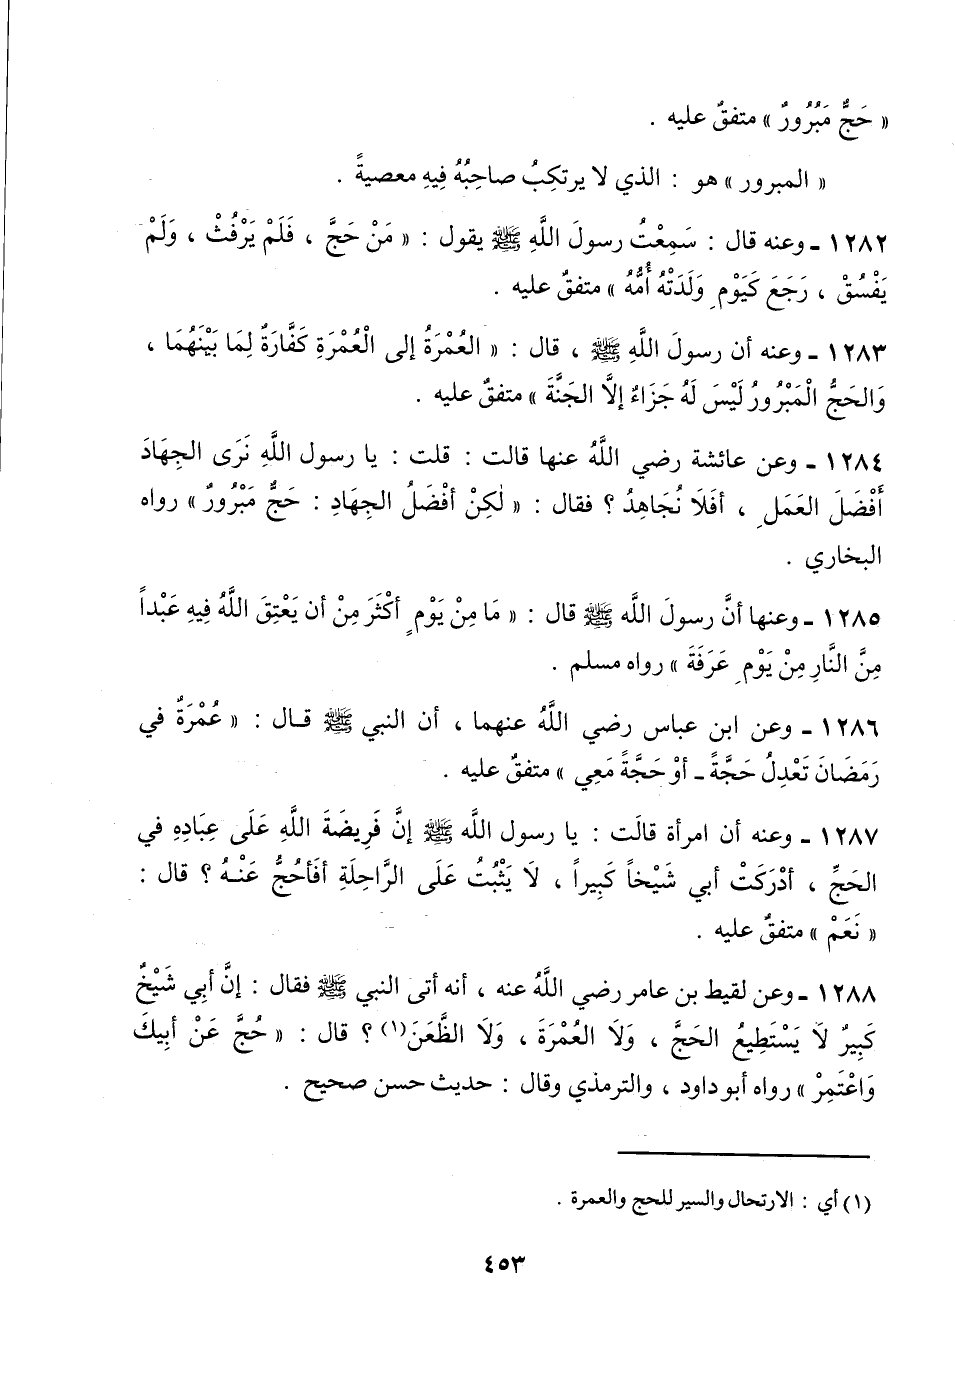 « حَجٌّ مَبْرُورٌ » متفقٌ عليه .
« المبرور » هو : الذي لا يرتكِبُ صاحِبُهُ فِيهِ معصيةً .
١٢٨٢ ـ وعنه قال : سَمِعْتُ رسولَ اللَّهِ ﷺ يقول : « مَنْ حَجَّ ، فَلَمْ يَرْفُثْ ، وَلَمْ
يَفْسُقْ ، رَجَعَ كَيَوْمِ وَلَدَتْهُ أُمُّهُ » متفقٌ عليه .
١٢٨٣ ـ وعنه أن رسولَ اللَّهِ ﷺ ، قال : « العُمْرَةُ إلى الْعُمْرَةِ كَفَّارَةٌ لِمَا بَيْنَهُمَا ،
وَالحَجُّ الْمَبْرُورُ لَيْسَ لَهُ جَزَاءٌ إلَّا الجَنَّةَ » متفقٌ عليه .
١٢٨٤ ـ وعن عائشة رضي اللَّهُ عنها قالت : قلت : يا رسول اللَّهِ نَرَى الجِهَادَ
أَفْضَلَ العَمَلِ ، أفَلَا نُجَاهِدُ ؟ فقال : « لٰكِنْ أفْضَلُ الجِهَادِ : حَجٌّ مَبْرُورٌ » رواه
البخاري .
١٢٨٥ ـ وعنها أنَّ رسولَ اللَّه ﷺ قال : « مَا مِنْ يَوْمٍ أكْثَرَ مِنْ أن يَعْتِقَ اللَّهُ فِيهِ عَبْداً
مِنَّ النَّارِ مِنْ يَوْمِ عَرَفَةَ » رواه مسلم .
١٢٨٦ ـ وعن ابن عباس رضي اللَّهُ عنهما ، أن النبي ﷺ قـال : « عُمْرَةٌ في
رَمَضَانَ تَعْدِلُ حَجَّةً ـ أوْ حَجَّةً مَعِي » متفقٌ عليه .
١٢٨٧ ـ وعنه أن امرأة قالَت : يا رسول اللَّه ﷺ إنَّ فَرِيضَةَ اللَّهِ عَلَى عِبَادِهِ في
الحَجِّ ، أدْرَكَتْ أبي شَيْخاً كَبِيراً ، لَا يَثْبُتُ عَلَى الرَّاحِلَةِ أفَأحُجُّ عَنْـهُ ؟ قال :
« نَعَمْ » متفقٌ عليه .
١٢٨٨ ـ وعن لقيط بن عامر رضي اللَّهُ عنه ، أنه أتى النبي ﷺ فقال : إنَّ أبِي شَيْخٌ
كَبِيرٌ لَا يَسْتَطِيعُ الحَجَّ ، وَلَا العُمْرَةَ ، وَلَا الظَّعَنَ(١) ؟ قال : « حُجَّ عَنْ أبِيكَ
وَاعْتَمِرْ » رواه أبو داود ، والترمذي وقال : حديث حسن صحيح .
(١) أي : الارتحال والسير للحج والعمرة .
٤٥٣